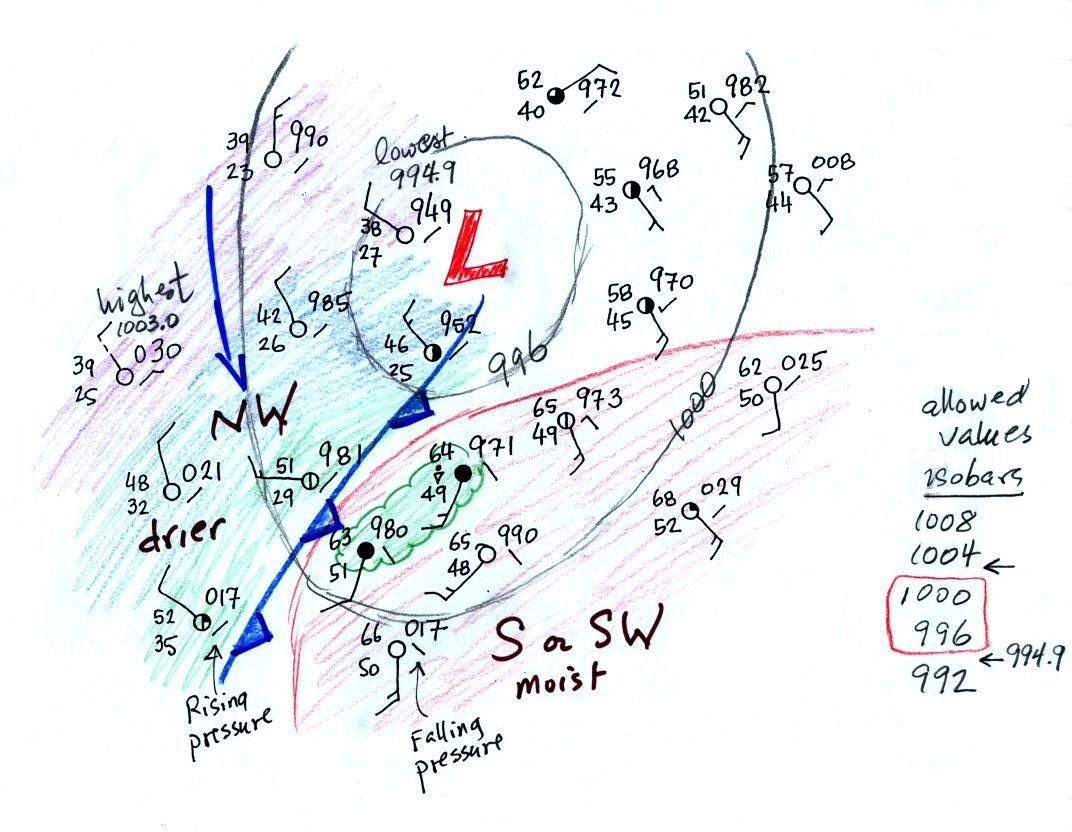 52
972
40
51
982
42
39
990
23
lowest
994.9
949
38
27
55
968
43
57
008
44
L
highest
1003.0
39
030
25
42
985
26
46
952
25
58
970
45
996
NW
1000
62
025
50
65
973
49
64
971
49
51
981
29
48
021
32
drier
63
980
51
65
990
48
68
029
52
52
017
35
66
017
50
S or SW
moist
Rising
pressure
Falling
pressure
allowed
values
isobars
1008
1004 ←
1000
996
←994.9
992